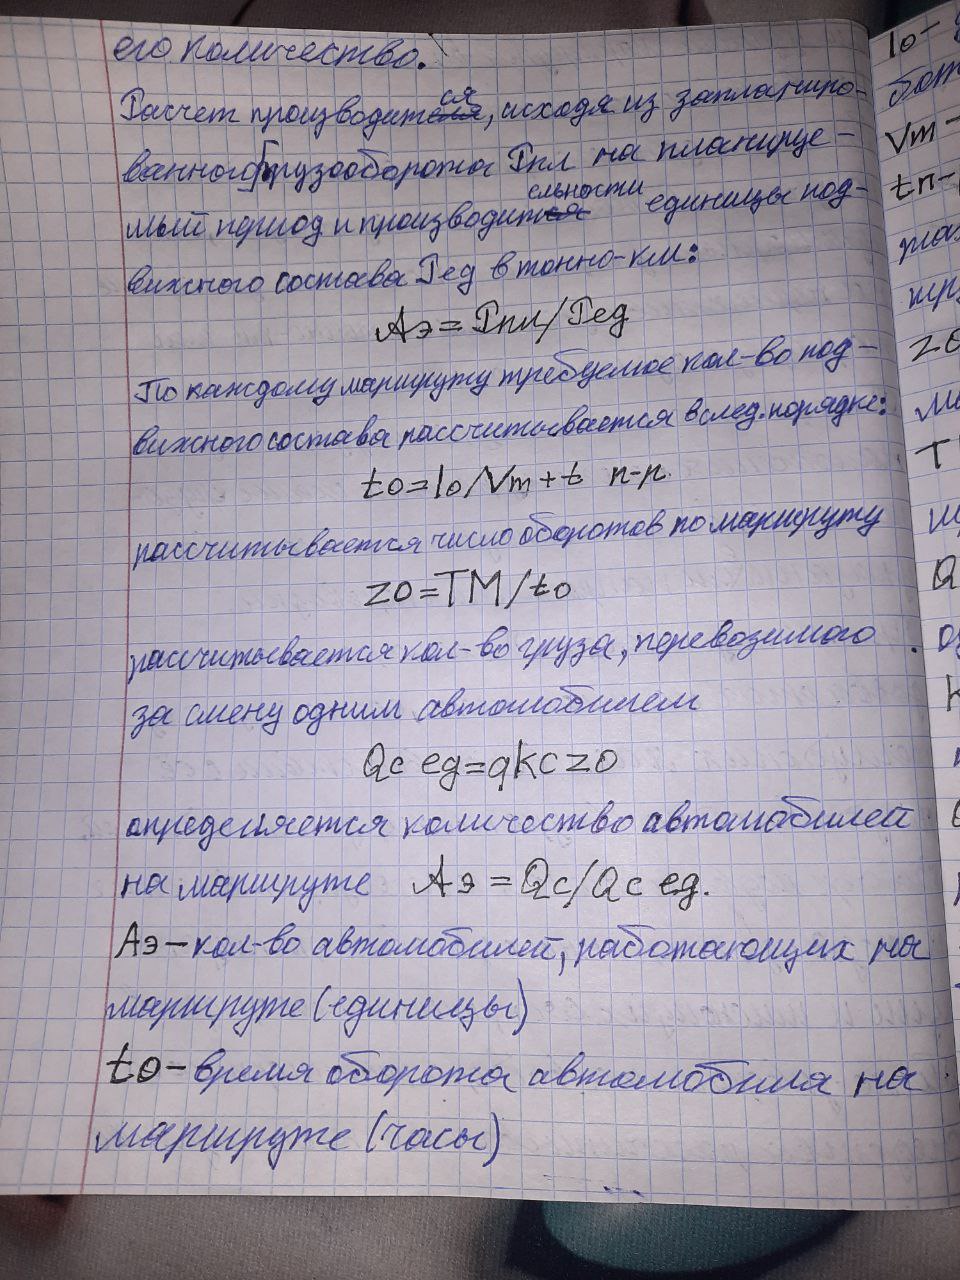 его количество.
Расчет производится, исходя из запланиро-
ванного грузооборота Рпл на планируе-
мый период и производительности единицы под-
вижного состава Ред в тонно-км:
Аэ = Рпл/Ред
По каждому маршруту требуемое кол-во под-
вижного состава рассчитывается в след. порядке:
to=lo/Vm+t п-р.
рассчитывается число оборотов по маршруту
zo=TM/to
рассчитывается кол-во груза, перевозимого
за смену одним автомобилем
Qc ед=qkczo
определяется количество автомобилей
на маршруте Аэ = Qc/Qc ед.
Аэ - кол-во автомобилей, работающих на
маршруте (единицы)
to - время оборота автомобиля на
маршруте (часы)
lo-
Vm-
tп-
zo
T
Q